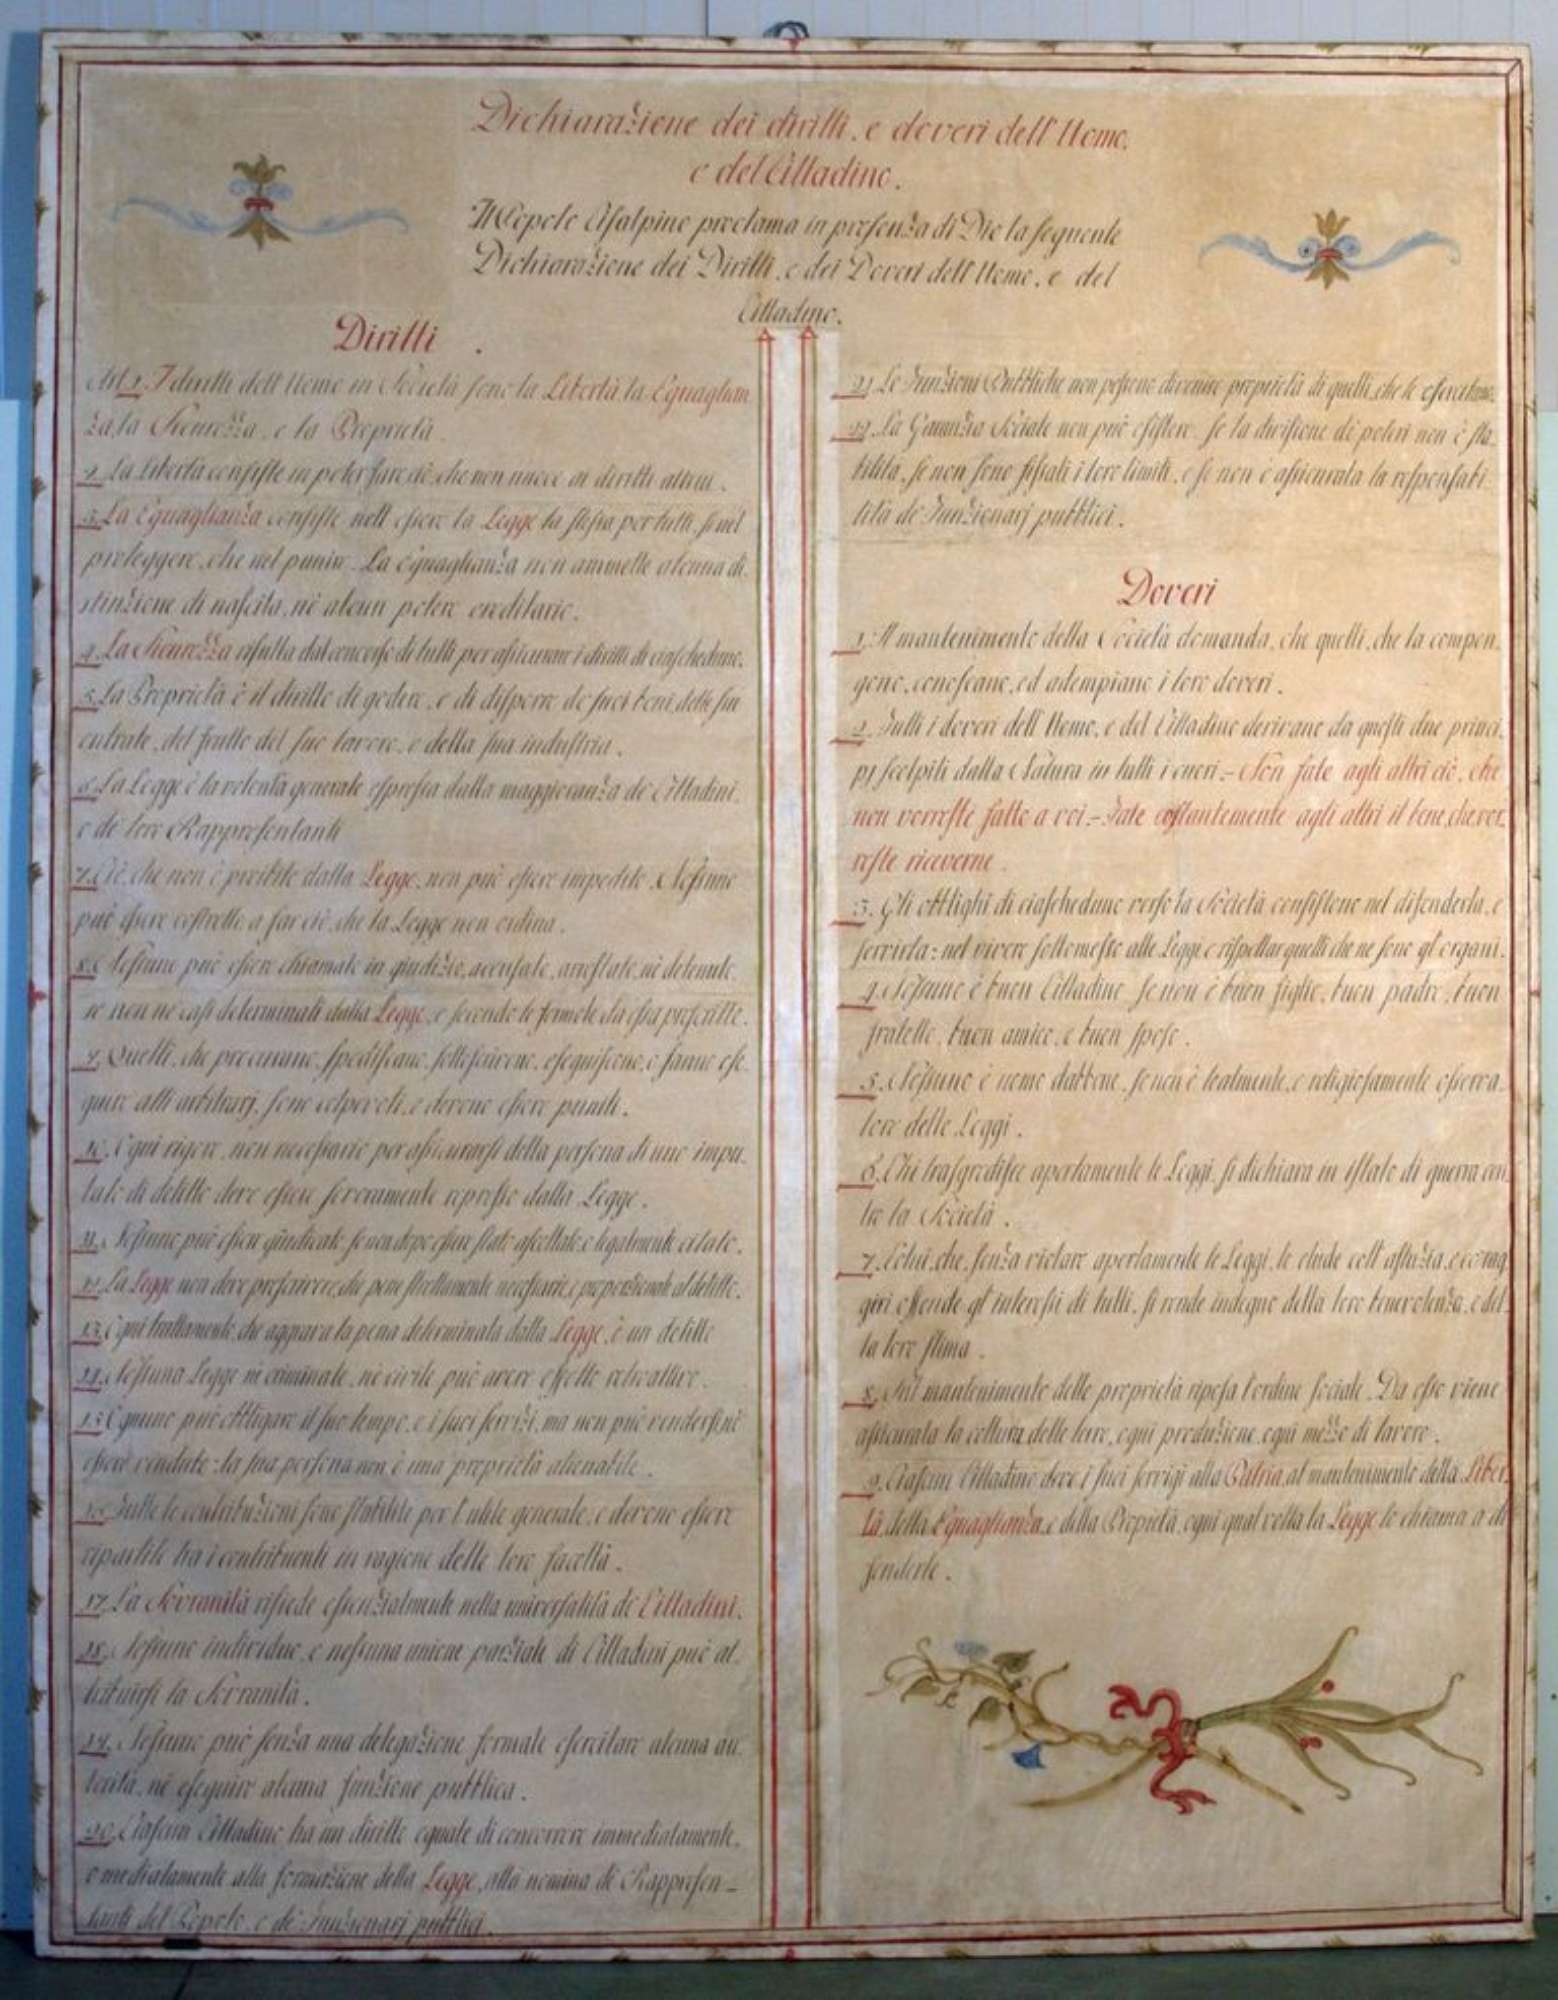 Dichiarazione dei diritti, e doveri dell'Uomo,
e del Cittadino.
Il Popolo Cisalpino proclama in presenza di Dio la seguente
Dichiarazione dei Diritti, e dei Doveri dell'Uomo, e del
Cittadino.
Diritti
Art. 1. I diritti dell'Uomo in Società sono la Libertà, la Eguaglian
za, la Sicurezza, e la Proprietà.
2. La Libertà consiste in poter fare ciò, che non nuoce ai diritti altrui.
3. La Eguaglianza consiste nell'essere la Legge la stessa per tutti, sì nel
proteggere, che nel punire. La eguaglianza non ammette alcuna di-
stinzione di nascita, nè alcun potere ereditario.
4. La Sicurezza risulta dal concorso di tutti per assicurare i diritti di ciascheduno.
5. La Proprietà è il diritto di godere, e di disporre de suoi beni, delle sue
entrate, del frutto del suo lavoro, e della sua industria.
6. La Legge è la volontà generale espressa dalla maggioranza de Cittadini,
e de loro Rappresentanti
7. Ciò, che non è proibito dalla Legge, non può essere impedito. Nessuno
può essere costretto a far ciò, che la Legge non ordina.
8. Nessuno può essere chiamato in giudizio, accusato, arrestato, nè detenuto,
se non ne casi determinati dalla Legge, e secondo le formole da essa prescritte.
9. Quelli, che procurano, spediscono, sottoscrivono, eseguiscono, o fanno ese-
guire atti arbitrarj, sono colpevoli, e devono essere puniti.
10. Ogni rigore, non necessario per assicurarsi della persona di uno impu-
tato di delitto deve essere severamente represso dalla Legge.
11. Nessuno può essere giudicato, se non dopo essere stato ascoltato, e legalmente citato.
12. La Legge non deve prescrivere, che pene strettamente necessarie, e proporzionate al delitto.
13. Ogni trattamento, che aggrava la pena determinata dalla Legge, è un delitto
14. Nessuna Legge nè criminale, nè civile può avere effetto retroattivo.
15. Ognuno può obbligare il suo tempo, e i suoi servizi, ma non può vendersi, nè
essere venduto: la sua persona non è una proprietà alienabile.
16. Tutte le contribuzioni sono stabilite per l'utile generale, e devono essere
ripartite tra i contribuenti in ragione delle loro facoltà.
17. La Sovranità risiede essenzialmente nella universalità de Cittadini.
18. Nessuno individuo, e nessuna unione parziale di Cittadini può at-
tribuirsi la Sovranità.
19. Nessuno può senza una delegazione formale esercitare alcuna au-
torità, nè eseguire alcuna funzione pubblica.
20. Ciascun Cittadino ha un diritto eguale di concorrere immediatamente,
o mediatamente alla formazione della Legge, alla nomina de Rappresen-
tanti del Popolo, e de' Funzionarj pubblici.
21. Le Funzioni Pubbliche non possono divenire proprietà di quelli, che le esercitano.
22. La Garanzia Sociale non può esistere, se la divisione de poteri non è sta-
bilita, se non sono fissati i loro limiti, e se non è assicurata la responsabi-
lità de Funzionarj pubblici.
Doveri
1. Il mantenimento della Società domanda, che quelli, che la compon-
gono, conoscano, ed adempiano i loro doveri.
2. Tutti i doveri dell'Uomo, e del Cittadino derivano da questi due princi-
pj scolpiti dalla Natura in tutti i cuori - Non fate agli altri ciò, che
non vorreste fatto a voi - Fate costantemente agli altri il bene, che vor-
reste riceverne.
3. Gli obblighi di ciascheduno verso la Società consistono nel difenderla, e
servirla: nel vivere sottomesso alle Leggi e rispettar quelli che ne sono gl'organi.
4. Nessuno è buon Cittadino se non è buon figlio, buon padre, buon
fratello, buon amico, e buon sposo.
5. Nessuno è uomo dabbene, se non è lealmente, e religiosamente osserva-
tore delle Leggi.
6. Chi trasgredisce apertamente le Leggi, si dichiara in istato di guerra con
tro la Società.
7. Colui, che, senza violare apertamente le Leggi, le elude coll'astuzia, e co rag
giri offende gl'interessi di tutti, si rende indegno della loro benevolenza, e del-
la loro stima.
8. Sul mantenimento delle proprietà riposa l'ordine sociale. Da esso viene
assicurata la coltura delle terre, ogni produzione, ogni mezzo di lavoro.
9. Ciascun Cittadino deve i suoi servigi alla Patria, al mantenimento della Liber-
tà, della Eguaglianza, e della Proprietà, ogni qual volta la Legge lo chiama a di-
fenderle.